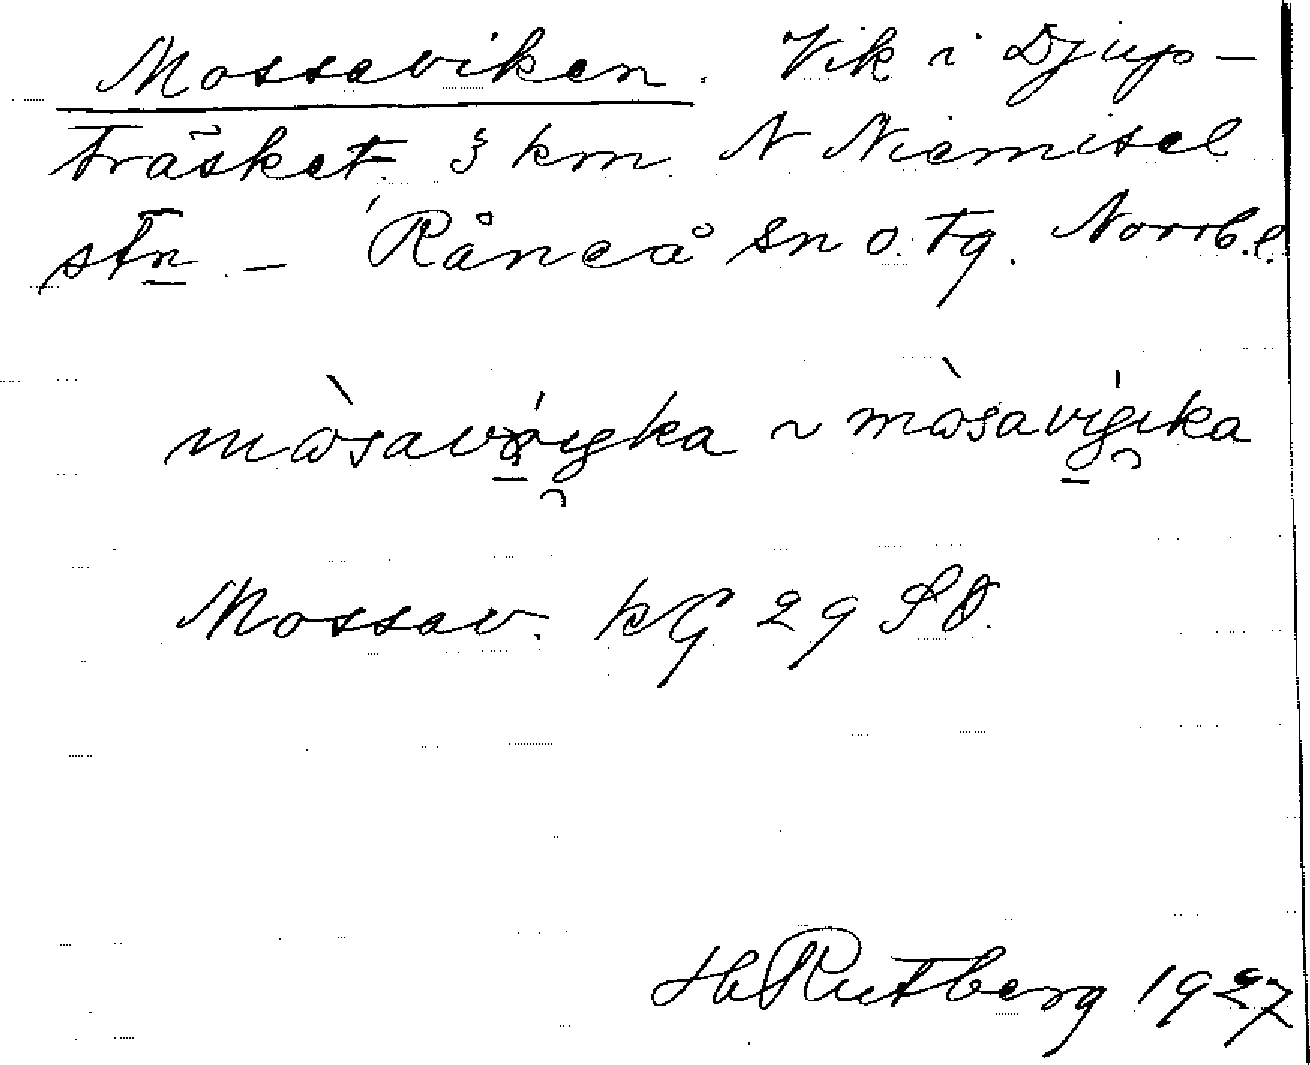 Mossaviken. Vik i Djup-
träsket 3 km N Niemisel
stn – Råneå sn o. tg. Norrb.l.
Mossav. kG 29 SO.
Hb Rutberg 1927